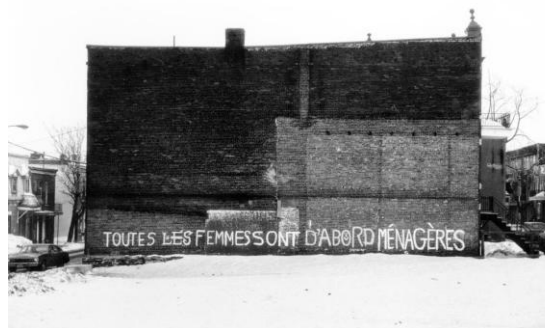 TOUTES LES FEMMES SONT D'ABORD MÉNAGÈRES